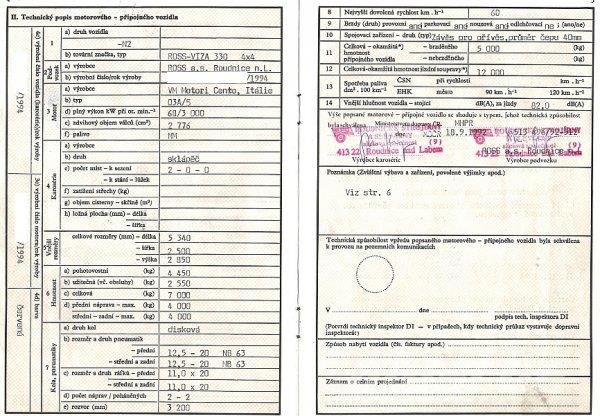 II. Technický popis motorového – přípojného vozidla
1
a) druh vozidla
-N2
b) tovární značka, typ
ROSS-VIZA 330 4x4
2
a) výrobce
ROSS a.s. Roudnice n.L.
b) výrobní číslo/rok výroby
/1994
3
Motor
a) výrobce
VM Motori Cento, Itálie
b) typ
03A/5
d) plný výkon kW při ot. min.⁻¹
60/3 000
e) zdvihový objem válců (cm³)
2 776
f) palivo
NM
4
Karosérie
a) výrobce
b) druh
sklápěč
c) počet míst – k sezení
2 - 0 - 0
– k stání – lůžek
f) zatížení střechy (kg)
g) objem cisterny – skříně (m³)
h) ložná plocha (mm) – délka
– šířka
5
Vnější rozměry
celkové rozměry (mm) – délka
5 340
– šířka
2 500
– výška
2 850
6
Hmotnost
a) pohotovostní (kg)
4 450
b) užitečná (vč. obsluhy) (kg)
2 550
c) celková (kg)
7 000
d) přední náprava – max. (kg)
4 000
střední – zadní – max. (kg)
4 000
7
Kola, pneumatiky
a) druh kol
disková
b) rozměr a druh pneumatik
– přední
12,5 - 20 NB 63
– střední a zadní
12,5 - 20 NB 63
c) rozměr a druh ráfků – přední
11,0 x 20
– střední a zadní
11,0 x 20
d) počet náprav / poháněných
2 - 2
e) rozvor (mm)
3 200
/1994
/1994
4d) barva
červená
8
Nejvyšší dovolená rychlost km . h⁻¹
60
9
Brzdy (druh) provozní and parkovací and nouzová and odlehčovací ne ; (ano/ne)
10
Spojovací zařízení – druh (typ)
Závěs pro přívěs, průměr čepu 40mm
11
Celková – okamžitá*)
hmotnost
přípojného vozidla
– brzděného (kg)
5 000
– nebrzděného (kg)
12
Celková-okamžitá hmotnost jízdní soupravy*) (kg)
12 000
13
Spotřeba paliva
dm³
100 km
ČSN
při rychlosti
km . h⁻¹
EHK
město
90 km . h⁻¹
120 km . h⁻¹
14
Vnější hlučnost vozidla – stojící
dB(A), za jízdy
82,0
dB(A)
Výše popsané motorové – přípojné vozidlo se shoduje s typem, jehož technická způsobilost
byla schválena
Ministerstvem
MHPR
ČR
18.9.1992
413 22 Roudnice nad Labem
(9)
413 22 Roudnice nad Labem
(9)
ROSS a.s. Roudnice
Výrobce karosérie
Výrobce podvozku
Poznámka (Zvláštní výbava a zařízení, povolené výjimky apod.)
Viz str. 6
Technická způsobilost vpředu popsaného motorového – přípojného vozidla byla schválena
k provozu na pozemních komunikacích
V
dne
podpis tech. inspektora DI
(Potvrdí technický inspektor DI – v případech, kdy technický průkaz vystavuje dopravní
inspektorát)
Způsob nabytí vozidla (čís. faktury apod.)
Záznam o celním projednání